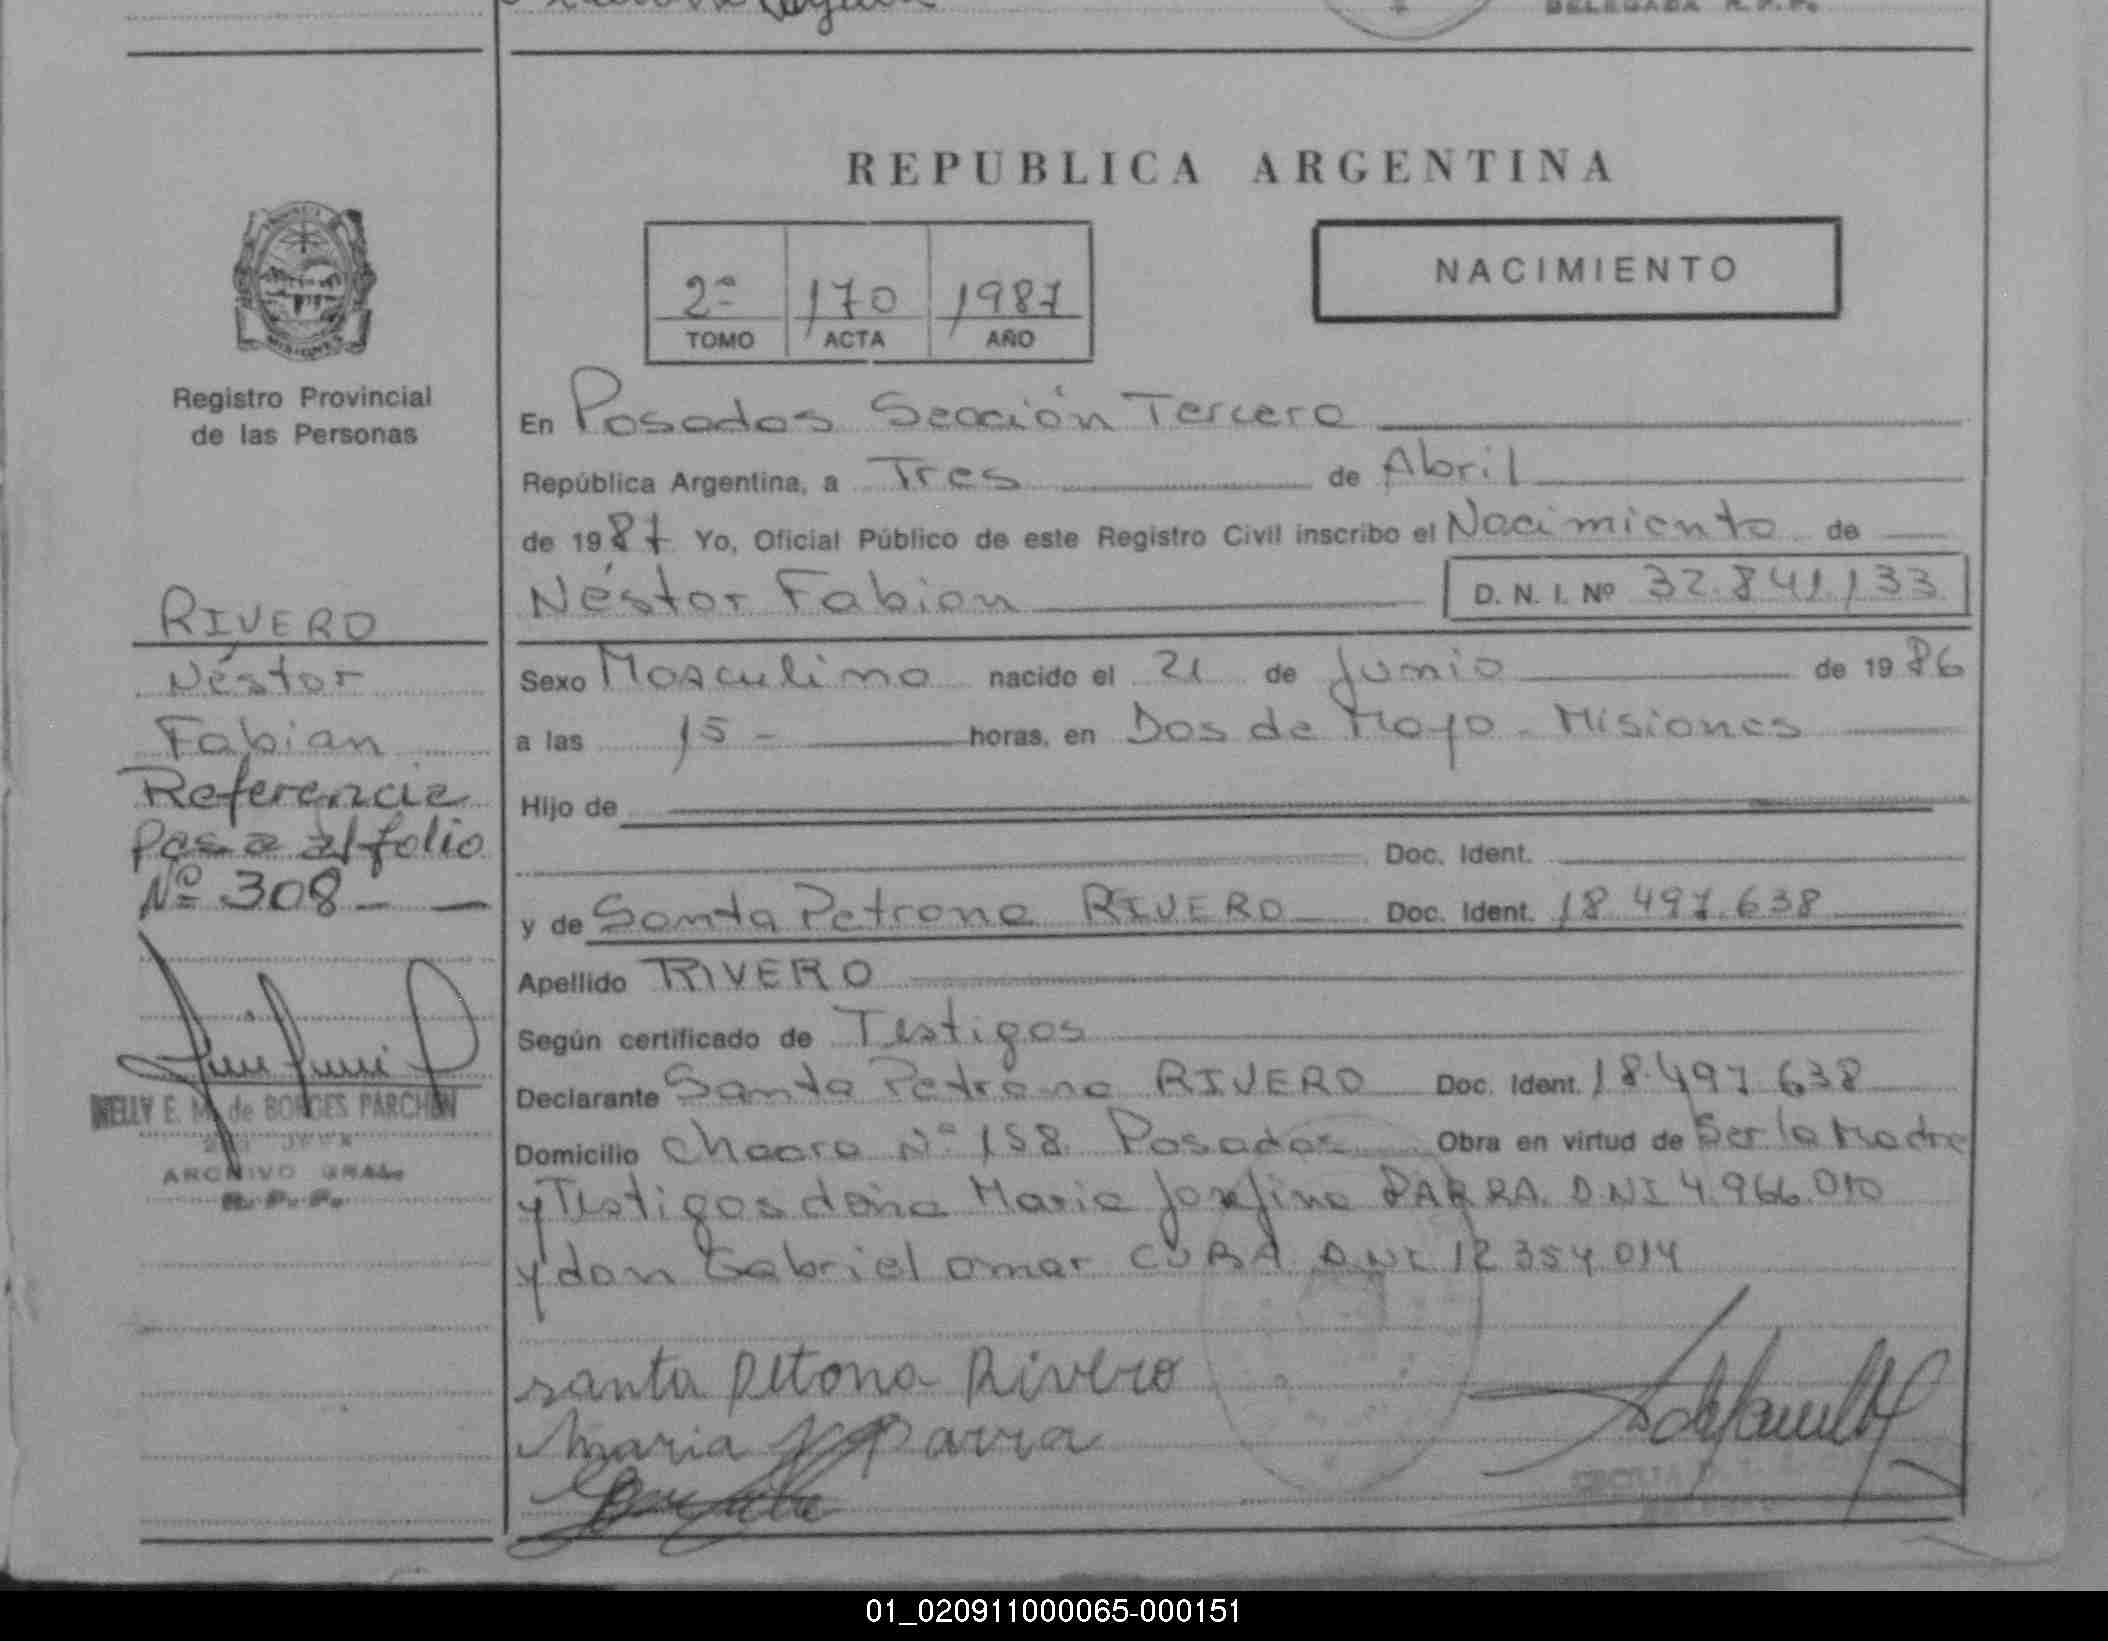 DELEGADA R.P.P.
REPUBLICA ARGENTINA
2ª 170 1987
TOMO ACTA AÑO
NACIMIENTO
MISIONES
Registro Provincial
de las Personas
En Posadas Sección Tercera
República Argentina, a Tres de Abril
de 1987 Yo, Oficial Público de este Registro Civil inscribo el Nacimiento de
Néstor Fabian D. N. I. Nº 32.841.133
RIVERO
Néstor
Fabian
Referencia
Pasa al folio
Nº 308
Sexo Masculino nacido el 21 de Junio de 1986
a las 15 - horas, en Dos de Mayo - Misiones
Hijo de
Doc. Ident.
y de Santa Petrona RIVERO Doc. Ident. 18.497.638
Apellido RIVERO
Según certificado de Testigos
Declarante Santa Petrona RIVERO Doc. Ident. 18.497.638
Domicilio Chacra Nº 158. Posadas Obra en virtud de Ser la Madre
y Testigos doña Maria Josefina PARRA. DNI 4.966.010
y don Gabriel Omar CUBA DNI 12.354.014
NELLY E. M. de BORGES PARCHEN
ARCHIVO GRAL.
R. P. P.
santa Petona Rivero
Maria J Parra
01_020911000065-000151